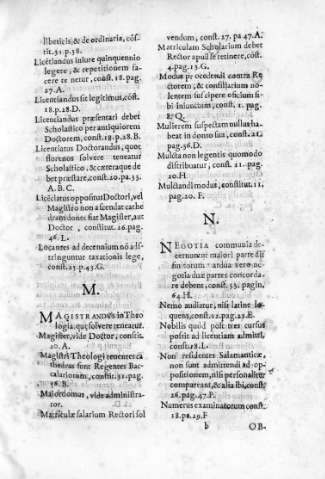 libeticis, & de ordinaria, cóst.
tit. 31 p. 38.
Licētiandus in iure quinquennio
legere, & repetitionem facere
cere te netur, const. 18. pag.
27. A.
Licenciandus sit legitimus, cóst.
18. p. 28. D.
Licenciandus præsentari debet
Scholastico per antiquiorem
Doctorem, const. 18. p. 28. B.
Licentiatus Doctorandus, quot
florenos solvere teneatur
Scholastico, & cæteraque debet
bet præstare, const. 20. pa. 33.
A. B. C.
Licēciatus oppositus Doctori, vel
Magistro non ascendat cathe
dram donec fiat Magister, aut
Doctor, constitut. 26. pag.
46. L.
Locantes ad decennium nō ad-
stringuntur taxationis lege,
const. 23. p. 43. G.
M.
MAGISTRANDUS in Theo
logia, qui, solvere teneatur.
Magister, vide Doctor, constit.
20. A.
Magistri Theologi tenentur ca
thedras sint Regentes Bac-
calariorum, const. 31. pag.
56. B.
Maiordomus, vide administra-
tor.
Matriculæ salarium Rectori sol
vendum, const. 27. pa 47. A.
Matriculam Scholarium debet
Rector apud se retinere, cōst.
4. pag. 13. G.
Modus procedendi contra Re
ctorem, & consiliarium no-
lentem suscipere oficium si-
bi iniunctum, const. 1. pag.
8. Q.
Mulierem suspectam nullus ha-
beat in domo sua, const. 21.
pag. 36. D.
Multa non legentis quomodo
distribuatur, const. 21. pag.
20. H.
Mulctandi modus, constitut. 11,
pag. 20. F.
N.
NEGOTIA communia de-
cernuntur maiori parte
ardua vero ne-
gotia duæ partes concorda-
re debent, const. 33. pagin,
64. H.
Nemo audiatur, nisi latine lo-
quens, const. 12. pag. 23. E.
Nobilis quid post tres cursus
possit ad licentiam admitti,
const. 18. L.
Non residentes Salamanticæ,
non sunt admittendi ad op-
positionem, nisi personaliter
compareant, & alia ibi, const.
26. pag. 47. P.
Numerus examinatorum const.
18. pa. 29. F
b OB-